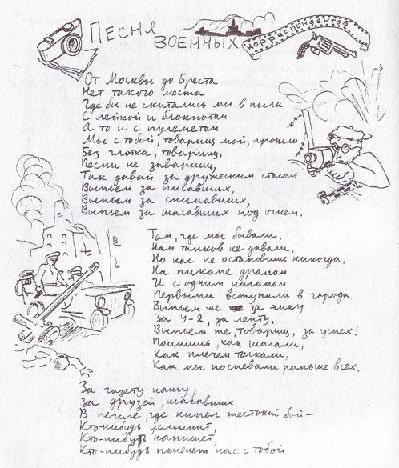 Песня
военных
корреспондентов
От Москвы до Бреста
Нет такого места
Где бы не скитались мы в пыли
С лейкой и блокнотом
А то и с пулеметом
Мы с тобой, товарищ мой, прошли
Без глотка, товарищ,
Песни не заваришь,
Так давай за дружеским столом
Выпьем за писавших,
Выпьем за снимавших,
Выпьем за шагавших под огнем.
Там, где мы бывали,
Нам танков не давали,
Но нас не остановишь никогда,
На пикапе драном
И с одним наганом
Первыми вступали в города
Выпьем же за
За У-2, за лепту,
Выпьем же, товарищ, за успех.
Помнишь, как шагали,
Как плечом толкали,
Как мы поспевали раньше всех.
За газету нашу,
За друзей писавших
В пекле где кипел жестокий бой –
Кто-нибудь услышит,
Кто-нибудь напишет,
Кто-нибудь помянет нас с тобой